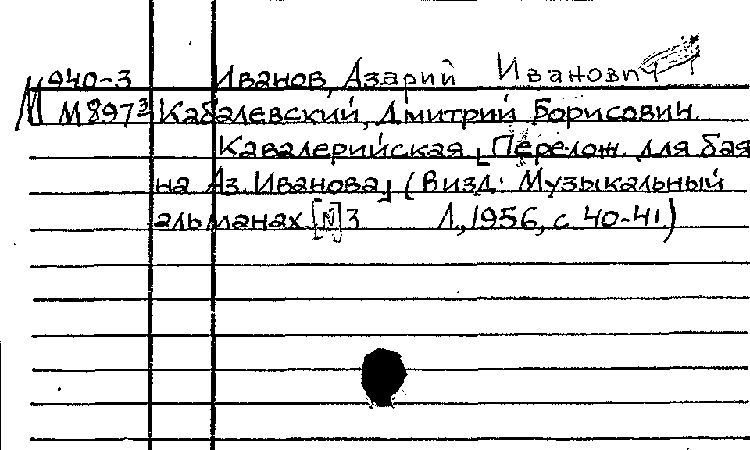 М 940-3 Иванов, Азарий Иванович
М 897³ Кабалевский, Дмитрий Борисович.
Кавалерийская. [Перелож. для бая
на Аз. Иванова] (В изд: Музыкальный
альманах [N] 3 Л., 1956, с. 40-41.)